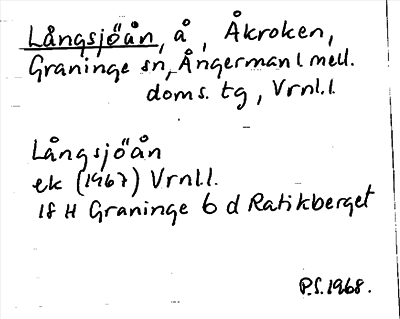 Långsjöån, å, Åkroken,
Graninge sn, Ångermanl. mell.
doms. tg, Vrnl.l.
Långsjöån
ek (1967) Vrnl.l.
18 H Graninge 6 d Ratikberget
P.S. 1968.